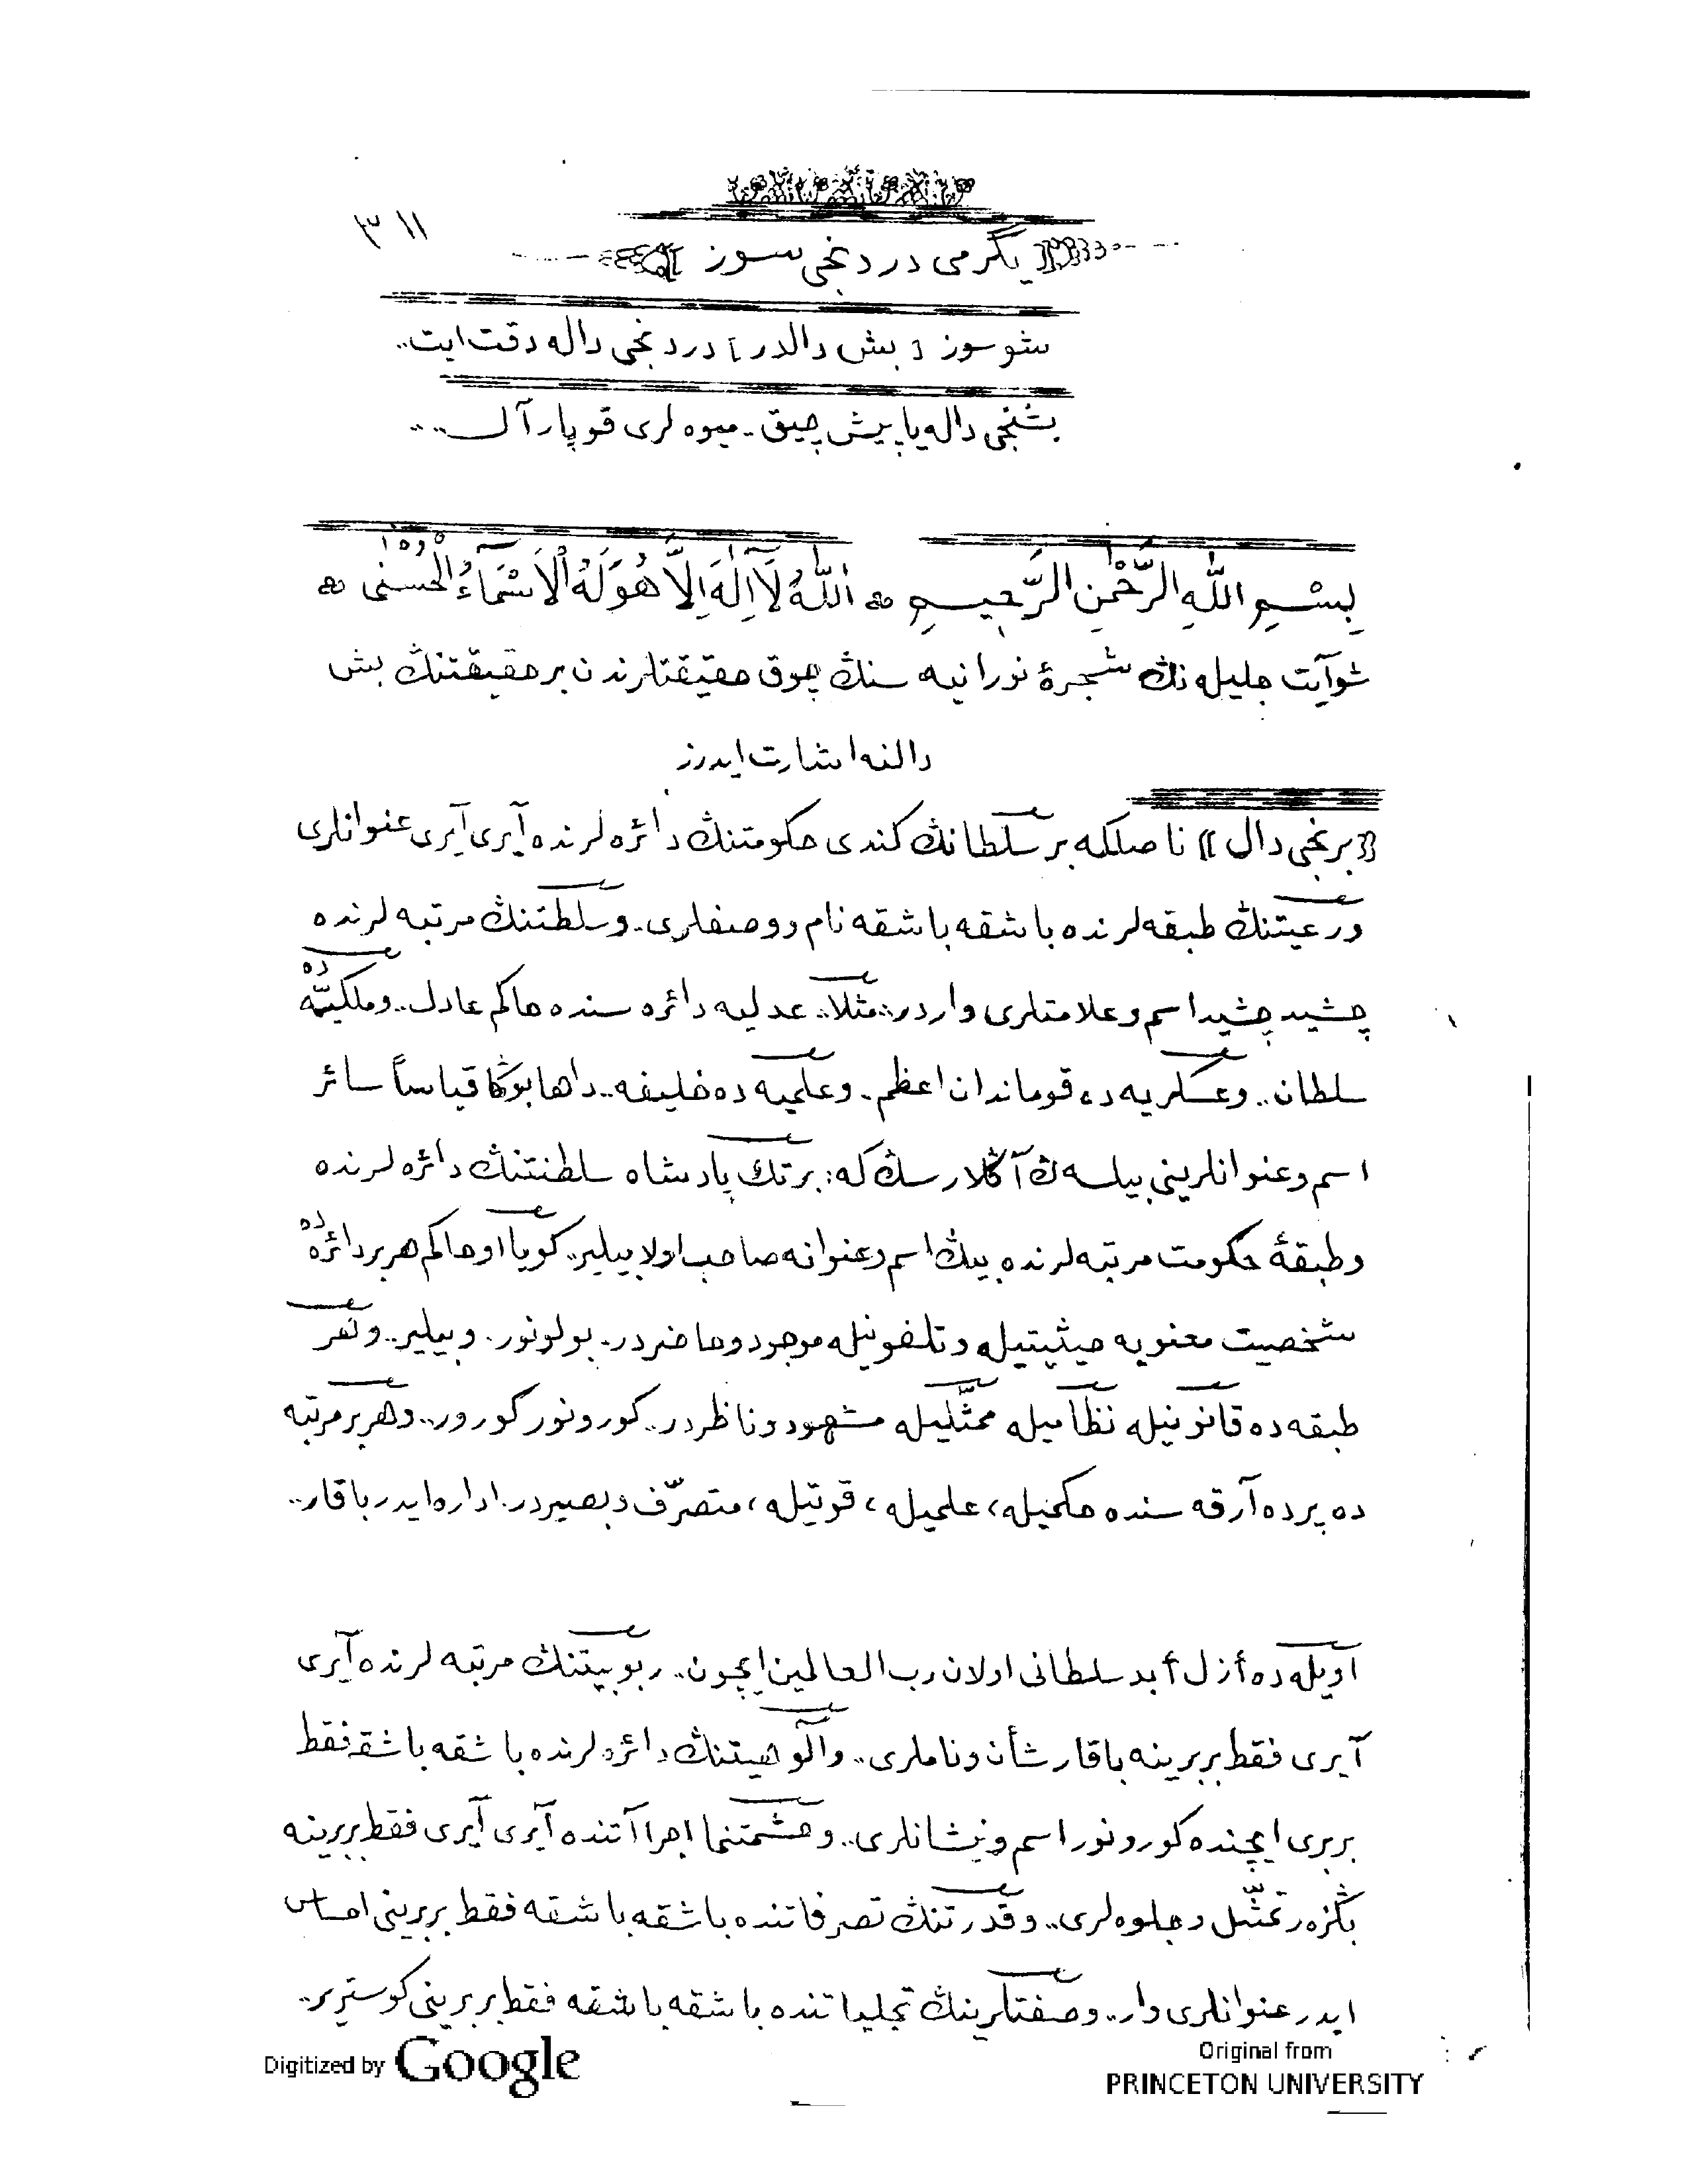 ٣١١
يگرمی دردنجی سوز
شو سوز [بش دالدر] دردنجی داله دقت ايت..
بشنجی داله ياپيش چيق.. ميوه لری قوپار آل....
بِسْمِ اللّٰهِ الرَّحْمٰنِ الرَّحِيمِ ۞ اَللّٰهُ لَٓا اِلٰهَ اِلَّا هُوَ لَهُ الْاَسْمَٓاءُ الْحُسْنٰى ۞
شو آيت جليله نڭ شجرۀ نورانيه سنڭ چوق حقيقتلرندن بر حقيقتنڭ بش
دالنه اشارت ايدرز
((برنجی دال)) ناصلكه بر سلطانڭ كندی حكومتنڭ دائره لرنده آيری آيری عنوانلری
ورعيتنڭ طبقه لرنده باشقه باشقه نام ووصفلری.. وسلطنتنڭ مرتبه لرنده
چشيد چشيد اسم وعلامتلری واردر.. مثلا.. عدليه دائره سنده حاكم عادل.. وملكيّه ده
سلطان.. وعسكريه ده قوماندان اعظم.. وعلميه ده خليفه.. داها بوڭا قياساً سائر
اسم وعنوانلرينی بيلسه ڭ آڭلارسڭ كه: برتك پادشاه سلطنتنڭ دائره لرنده
وطبقۀ حكومت مرتبه لرنده بيڭ اسم وعنوانه صاحب اولابيلير.. كويا او حاكم هر بر دائره ده
شخصيت معنويه حيثيتيله وتلفونيله موجود وحاضردر.. بولونور.. وبيلير.. وهر
طبقه ده قانونيله نظاميله ممثّليله مشهود وناظردر.. كورونور كورور.. وهر بر مرتبه
ده پرده آرقه سنده حكميله، علميله، قوتيله، متصرّف وبصيردر.. اداره ايدر باقار..
اويله ده أزل أبد سلطانی اولان رب العالمين ايچون.. ربوبيتنڭ مرتبه لرنده آيری
آيری فقط بربرينه باقار شأن وناملری.. وألوهيتنڭ دائره لرنده باشقه باشقه فقط
بربری ايچنده كورونور اسم ونشانلری.. وحشمتنما اجراآتنده آيری آيری فقط بربرينه
بڭزه ر تمثّل وجلوه لری.. وقدرتنڭ تصرفاتنده باشقه باشقه فقط بربرينی احساس
ايدر عنوانلری وار.. وصفتلرينڭ تجلياتنده باشقه باشقه فقط بربرينی كوسترير..
Digitized by Google
Original from
PRINCETON UNIVERSITY